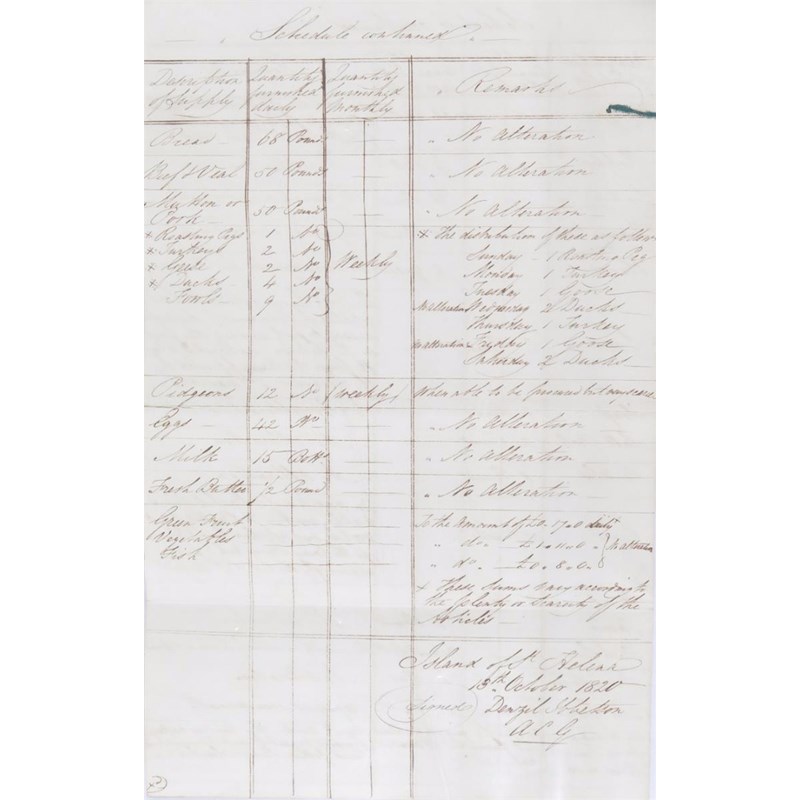 Schedule continued
Description of Supply | Quantity furnished daily | Quantity furnished Monthly | Remarks
Bread | 68 Pounds | No Alteration
Beef & Veal | 50 Pounds | No Alteration
Mutton or Pork | 50 Pounds | No Alteration
* Roasting Pigs | 1 No | Weekly | * The distribution of these as follows
* Turkeys | 2 No | Sunday 1 Roasting Pig
* Geese | 2 No | Monday 1 Turkey
* Ducks | 4 No | Tuesday 1 Goose
Fowls | 9 No | No alteration Wednesday 2 Ducks
Thursday 1 Turkey
No alteration Fryday 1 Goose
Saturday 2 Ducks
Pidgeons | 12 No | (weekly) | When able to be procured but very scarce
Eggs | 42 No | No Alteration
Milk | 15 Bott | No Alteration
Fresh Butter | 1/2 Pound | No Alteration
Green Fruit | To the Amount of £0.17.0 daily
Vegetables | " do. £1.11.0 " No alteration
Fish | " do. £0.8.0
* These sums vary according to
the plenty or scarcity of the
Articles
Island of St Helena
13th October 1820
(Signed) Denzil Ibbetson
A C G